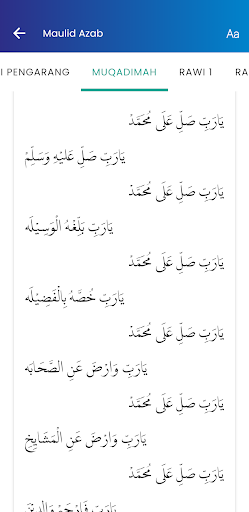 Maulid Azab
Aa
I PENGARANG MUQADIMAH RAWI 1 RA
يَارَبِّ صَلِّ عَلَى مُحَمَّدْ
يَارَبِّ صَلِّ عَلَيْهِ وَسَلِّمْ
يَارَبِّ صَلِّ عَلَى مُحَمَّدْ
يَارَبِّ بَلِّغْهُ الْوَسِيْلَه
يَارَبِّ صَلِّ عَلَى مُحَمَّدْ
يَارَبِّ خُصَّهُ بِالْفَضِيْلَه
يَارَبِّ صَلِّ عَلَى مُحَمَّدْ
يَارَبِّ وَارْضَ عَنِ الصَّحَابَه
يَارَبِّ صَلِّ عَلَى مُحَمَّدْ
يَارَبِّ وَارْضَ عَنِ الْمَشَايِخِ
يَارَبِّ صَلِّ عَلَى مُحَمَّدْ
يَارَبِّ فَارْحَمْ وَالِدِيْنَ